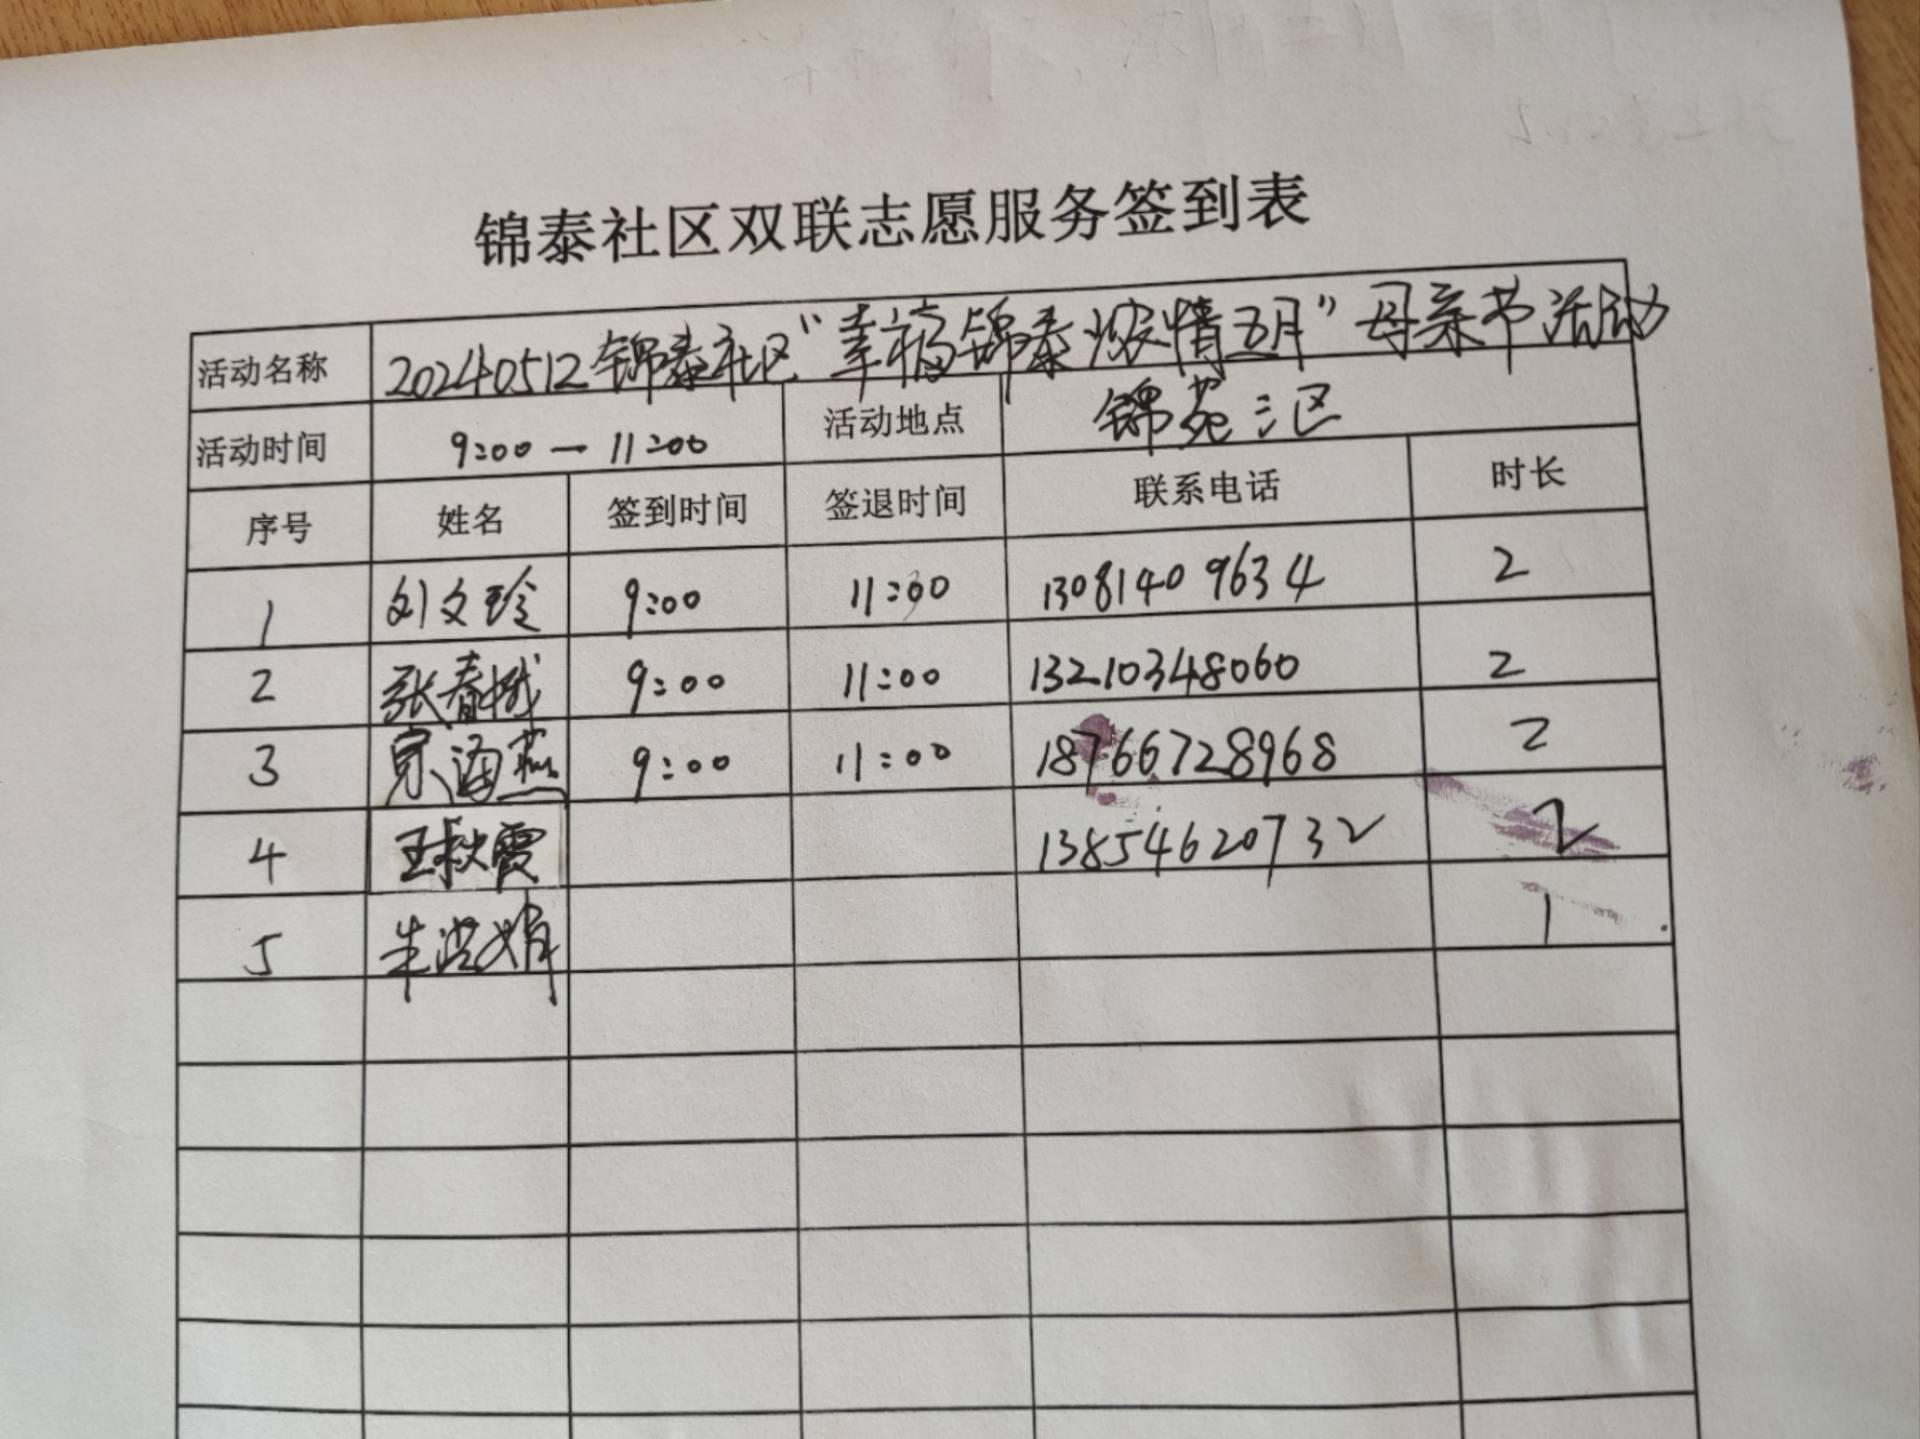 锦泰社区双联志愿服务签到表
活动名称 20240512锦泰社区“幸福锦泰浓情五月”母亲节活动
活动时间 9:00—11:00 活动地点 锦苑三区
序号 姓名 签到时间 签退时间 联系电话 时长
1 刘文玲 9:00 11:00 13081409634 2
2 张春城 9:00 11:00 13210348060 2
3 宗海燕 9:00 11:00 18766728968 2
4 王秋霞 13854620732 2
5 朱洪娟 1